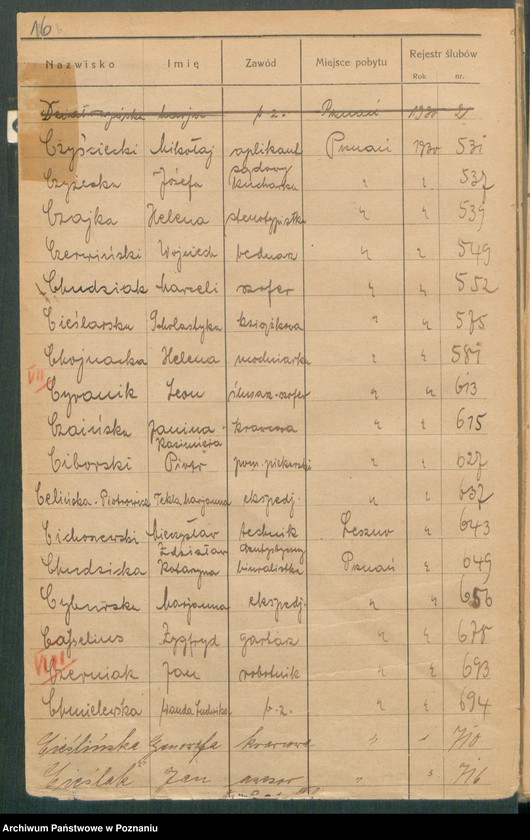 16
Rejestr ślubów
Nazwisko Imię Zawód Miejsce pobytu
Rok nr.
b. z. Poznań 1930
Czyściecki Mikołaj aplikant Poznań 1930 531
sądowy
Czyżecka Józefa kucharka " " 537
Czajka Helena stenotypistka " " 539
Czerwiński Wojciech bednarz " " 549
Chudziak Marceli szofer " " 552
Cieślarska Scholastyka książkowa " " 575
Chojnacka Helena modniarka " " 581
VII
Cyranik Leon ślusarz-szofer " " 613
Czaińska Janina - krawcowa " " 615
Kazimiera
Ciborski Piotr pom. piekarski " " 627
Celińska-Piotrowicz Tekla Marjanna ekspedj. " " 637
Cichoszewski Mieczysław technik Leszno " 643
Zdzisław dentystyczny
Chudzicka Katarzyna biuralistka Poznań " 649
Cybulska Marjanna ekspedj. " " 650
Casselius Zygfryd garbarz " " 678
VIII
Czerniak Jan robotnik " " 693
Chmielewska Wanda Ludwika b. z. " " 694
Cieślińska Genowefa krawcowa " " 710
Cieślak Jan asesor " " 716
Archiwum Państwowe w Poznaniu